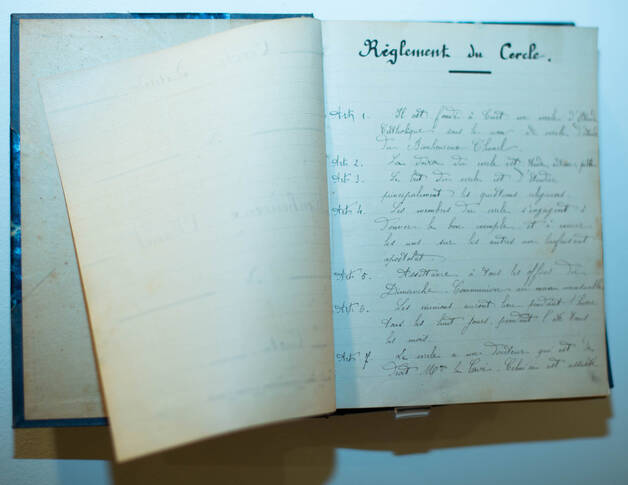 Règlement du Cercle.
Art. 1. Il est fondé à Cuet un cercle d'Etude
Catholique sous le nom de cercle d'étude
du Bienheureux Chanel.
Art. 2. La devise du cercle est
Art. 3. Le but du cercle est d'étudier
principalement les questions religieuses.
Art. 4. Les membres du cercle s'engagent à
donner le bon exemple et à exercer
les uns sur les autres un bienfaisant
apostolat.
Art. 5. Assistance à tous les offices du
Dimanche. Communion au moins mensuelle.
Art. 6. Les réunions auront lieu pendant l'hiver
tous les huit jours, pendant l'été tous
les mois.
Art. 7. Le cercle a un Directeur qui est de
Droit Mr le Curé. Celui ci est